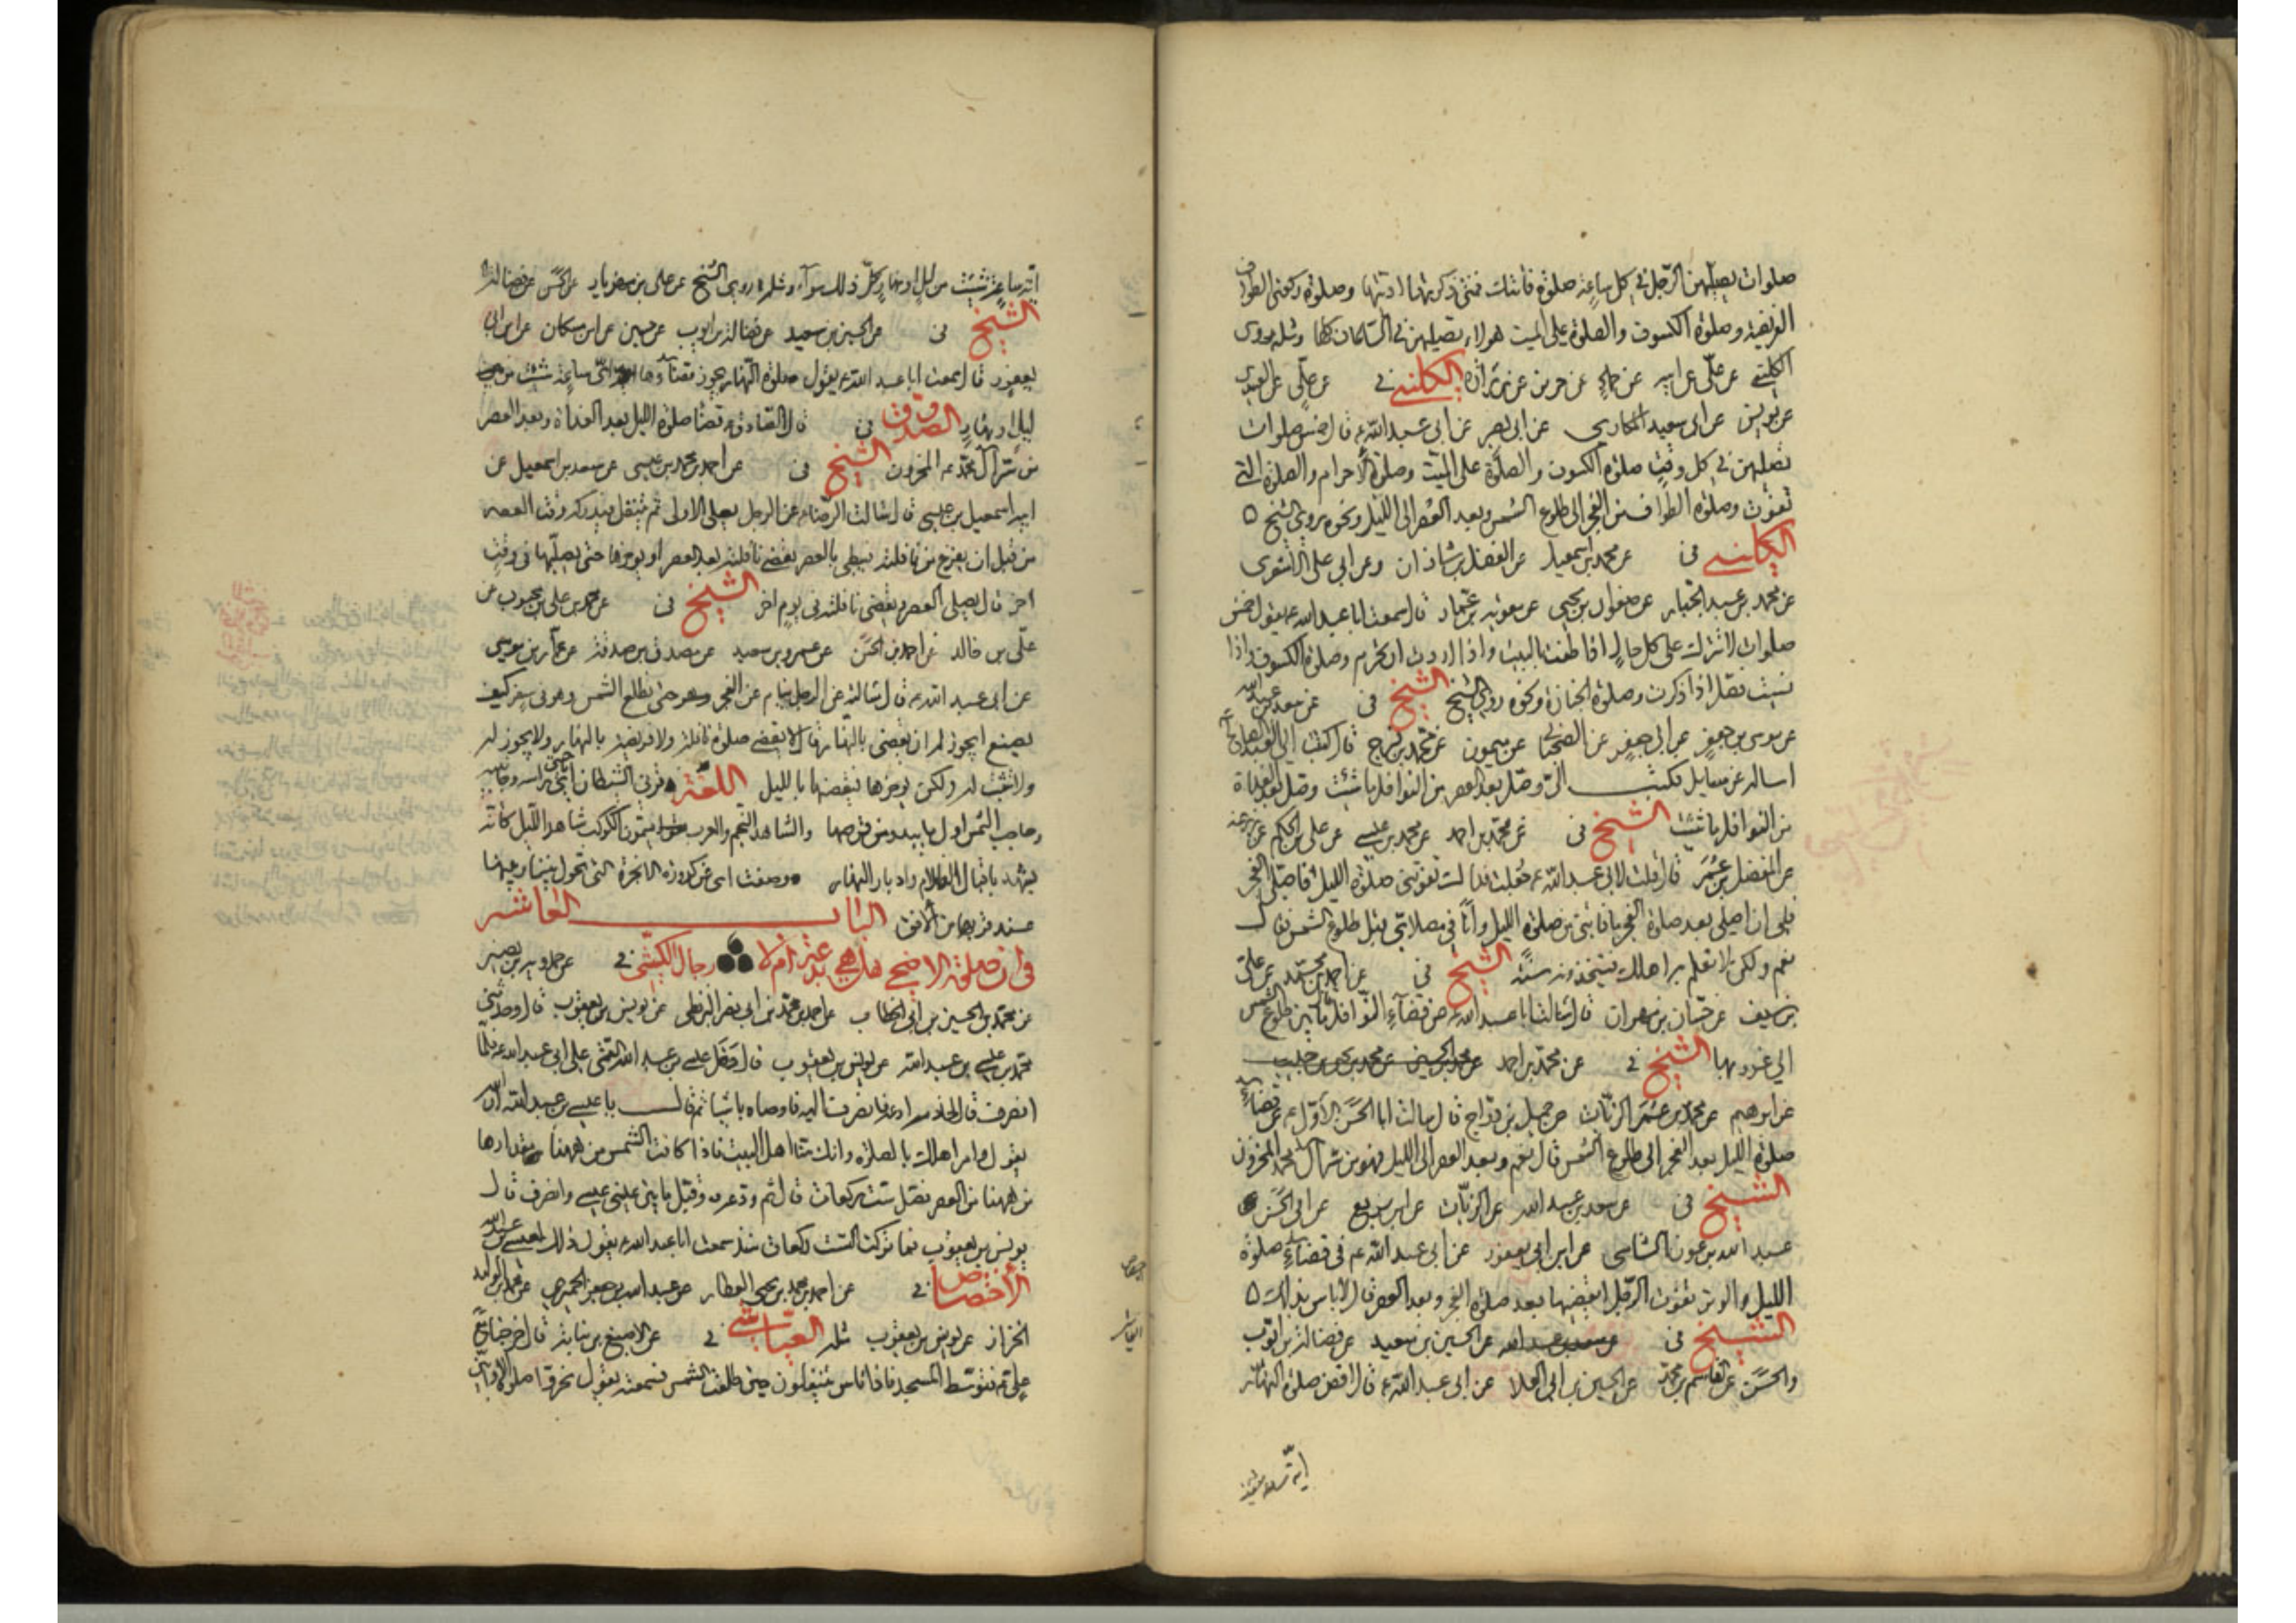 صلوات يصليهن الرجل في كل ساعة صلوة فاتتك فمتى ذكرتها اديتها وصلوة ركعتي الطواف
الفريضة وصلوة الكسوف والصلوة على الميت هولاء تصليهن في الساعات كلها ومثله روى
الكليني عن علي عن ابيه عن حماد عن حريز عن زرارة الكليني في عن علي عن العبيدي
عن يونس عن ابي سعيد المكاري عن ابي بصير عن ابي عبد الله ع قال خمس صلوات
تصليهن في كل وقت صلوة الكسوف والصلوة على الميت وصلوة الاحرام والصلوة التي
تفوت وصلوة الطواف من الفجر الى طلوع الشمس وبعد العصر الى الليل ونحوه روى الشيخ ه
الكليني في عن محمد بن اسمعيل عن الفضل بن شاذان وعن ابي علي الاشعري
عن محمد بن عبد الجبار عن صفوان بن يحيى عن معوية بن عمار قال سمعت ابا عبد الله ع يقول خمس
صلوات لا تترك على كل حال اذا طفت بالبيت واذا اردت ان تحرم وصلوة الكسوف واذا
نسيت فصل اذا ذكرت وصلوة الجنازة ونحوه روى الشيخ الشيخ في عن سعد بن عبد الله
عن موسى بن جعفر عن ابي جعفر عن عن ميمون عن محمد بن فرج قال كتبت الى العبد الصالح ع
اساله عن مسايل فكتب الي وصل بعد العصر من النوافل ما شئت وصل بعد الغداة
من النوافل ما شئت الشيخ في عن محمد بن احمد عن محمد بن عيسى عن علي بن الحكم عن
عن المفضل بن عمر قال قلت لابي عبد الله ع جعلت فداك تفوتني صلوة الليل فاصلي الفجر
فلي ان اصلي بعد صلوة الفجر ما فاتني من صلوة الليل وانا في مصلاي قبل طلوع الشمس فقال
نعم ولكن لا تعلم به اهلك فيتخذونه سنة الشيخ في عن احمد بن محمد عن علي
بن سيف عن حسان بن مهران قال سالت ابا عبد الله ع عن قضاء النوافل ما بين طلوع الشمس
الى غروبها الشيخ في عن محمد بن احمد عن محمد بن الحسين عن محمد بن يحيى بن حبيب
عن ابرهيم عن محمد بن عمر الزيات عن جميل بن دراج قال سالت ابا الحسن الاول ع عن قضاء
صلوة الليل بعد الفجر الى طلوع الشمس قال نعم وبعد العصر الى الليل فهو من سر آل محمد المخزون
الشيخ في عن سعد بن عبد الله عن الزيات عن ابن بزيع عن ابي الحسن
عبد الله بن عون الشامي عن ابن ابي يعفور عن ابي عبد الله ع في قضاء صلوة
الليل والوتر تفوت الرجل ايقضيها بعد صلوة الفجر وبعد العصر قال لا باس بذلك ه
الشيخ في عن الحسين بن سعيد عن فضالة بن ايوب
والحسن عن القاسم بن محمد عن الحسين بن ابي العلا عن ابي عبد الله ع قال اقض صلوة النهار
اية ساعة شئت
اية ساعة شئت من ليل او نهار كل ذلك سواء ومثله روى الشيخ عن علي بن مهزيار عن الحسن عن فضالة
الشيخ في عن الحسين بن سعيد عن فضالة بن ايوب عن حسين عن ابن مسكان عن ابن ابي
يعفور قال سمعت ابا عبد الله ع يقول صلوة النهار يجوز قضاؤها اي ساعة شئت من
ليل او نهار الصدوق في قال الصادق ع قضاء صلوة الليل بعد الغداة وبعد العصر
من سر آل محمد ع المخزون الشيخ في عن احمد بن محمد بن عيسى عن سعد بن اسمعيل عن
ابيه اسمعيل بن عيسى قال سالت الرضا ع عن الرجل يصلي الاولى ثم يتنفل فيدركه وقت العصر
من قبل ان يفرغ من نافلته فيبطي بالعصر يقضي نافلته بعد العصر او يوخرها حتى يصليها في وقت
اخر قال يصلي العصر ويقضي نافلته في يوم اخر الشيخ في عن محمد بن علي بن محبوب عن
علي بن خالد عن احمد بن الحسن عن عمرو بن سعيد عن مصدق بن صدقة عن عمار بن موسى
عن ابي عبد الله ع قال سالته عن الرجل ينام عن الفجر حتى تطلع الشمس وهو في سفر كيف
يصنع ايجوز له ان يقضي بالنهار قال لا يقضي صلوة نافلة ولا فريضة بالنهار ولا يجوز له
ولا تثبت له ولكن يوخرها فيقضيها بالليل اللغة قرني الشيطان ناحيتي راسه وجانبيه
وحاجب الشمس اول ما يبدو من قرصها والشاهد النجم والعرب يسمون الكوكب شاهد الليل كانه
يشهد باقبال الظلام وادبار النهار
الباب العاشر
في ان صلوة الاضحى هل هي بدعة ام لا رجال الكشي في عن حمدويه بن نصير
عن محمد بن الحسين بن ابي الخطاب عن احمد بن محمد بن ابي نصر البزنطي عن يونس بن يعقوب قال وحدثني
محمد بن عيسى بن عبد الله عن يونس بن يعقوب قال دخل عيسى بن عبد الله القمي على ابي عبد الله ع فلما
انصرف قال لخادمه ادعه فانصرف اليه فاوصاه باشياء ثم قال يا عيسى بن عبد الله ان الله
يقول وامر اهلك بالصلوة وانك منا اهل البيت فاذا كانت الشمس من ههنا مقدارها
من ههنا من العصر فصل ست ركعات قال ثم ودعه وقبل ما بين عيني عيسى وانصرف قال
يونس بن يعقوب فما تركت الست ركعات منذ سمعت ابا عبد الله ع يقول ذلك لعيسى بن عبد الله
الاختصاص في عن احمد بن محمد بن يحيى العطار عن عبد الله بن جعفر الحميري عن محمد بن الوليد
الخزاز عن يونس بن يعقوب مثله العياشي في عن الاصبغ بن نباتة قال خرجنا مع
علي ع فتوسط المسجد فاذا ناس يتنفلون حين طلعت الشمس فسمعته يقول نحروا صلوة الاوابين